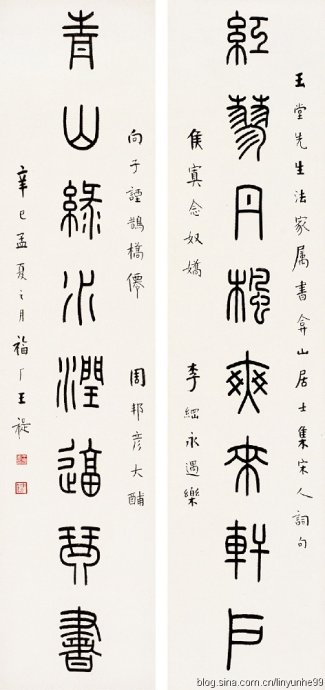 玉堂先生法家属書弇山居士集宋人詞句
紅蓼丹楓爽來軒戶
侯寘念奴嬌 李綱永遇樂
向子諲鵲橋僊 周邦彥大酺
青山綠水潤逼琴書
辛巳孟夏之月福厂王禔
blog.sina.com.cn/linyunhe99